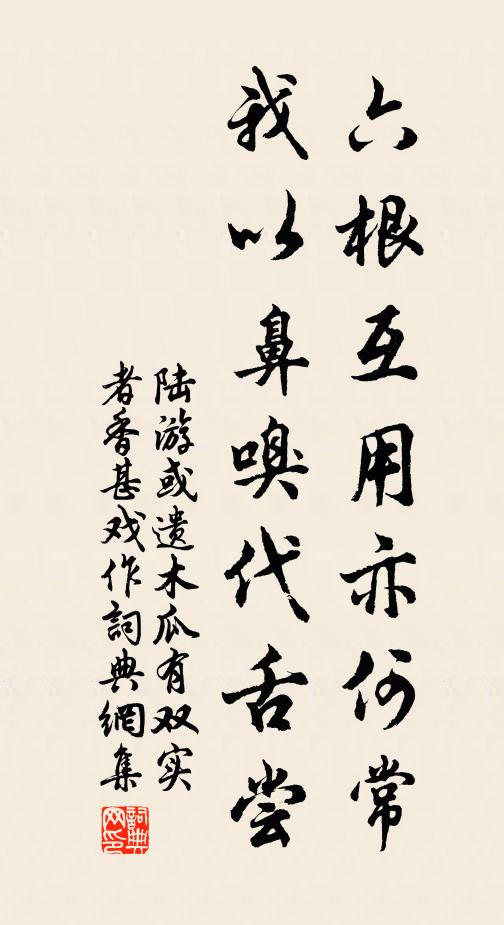 六根互用亦何常
我以鼻嗅代舌尝
陆游或遗木瓜有双实
者香甚戏作詞典網集
詞典网印